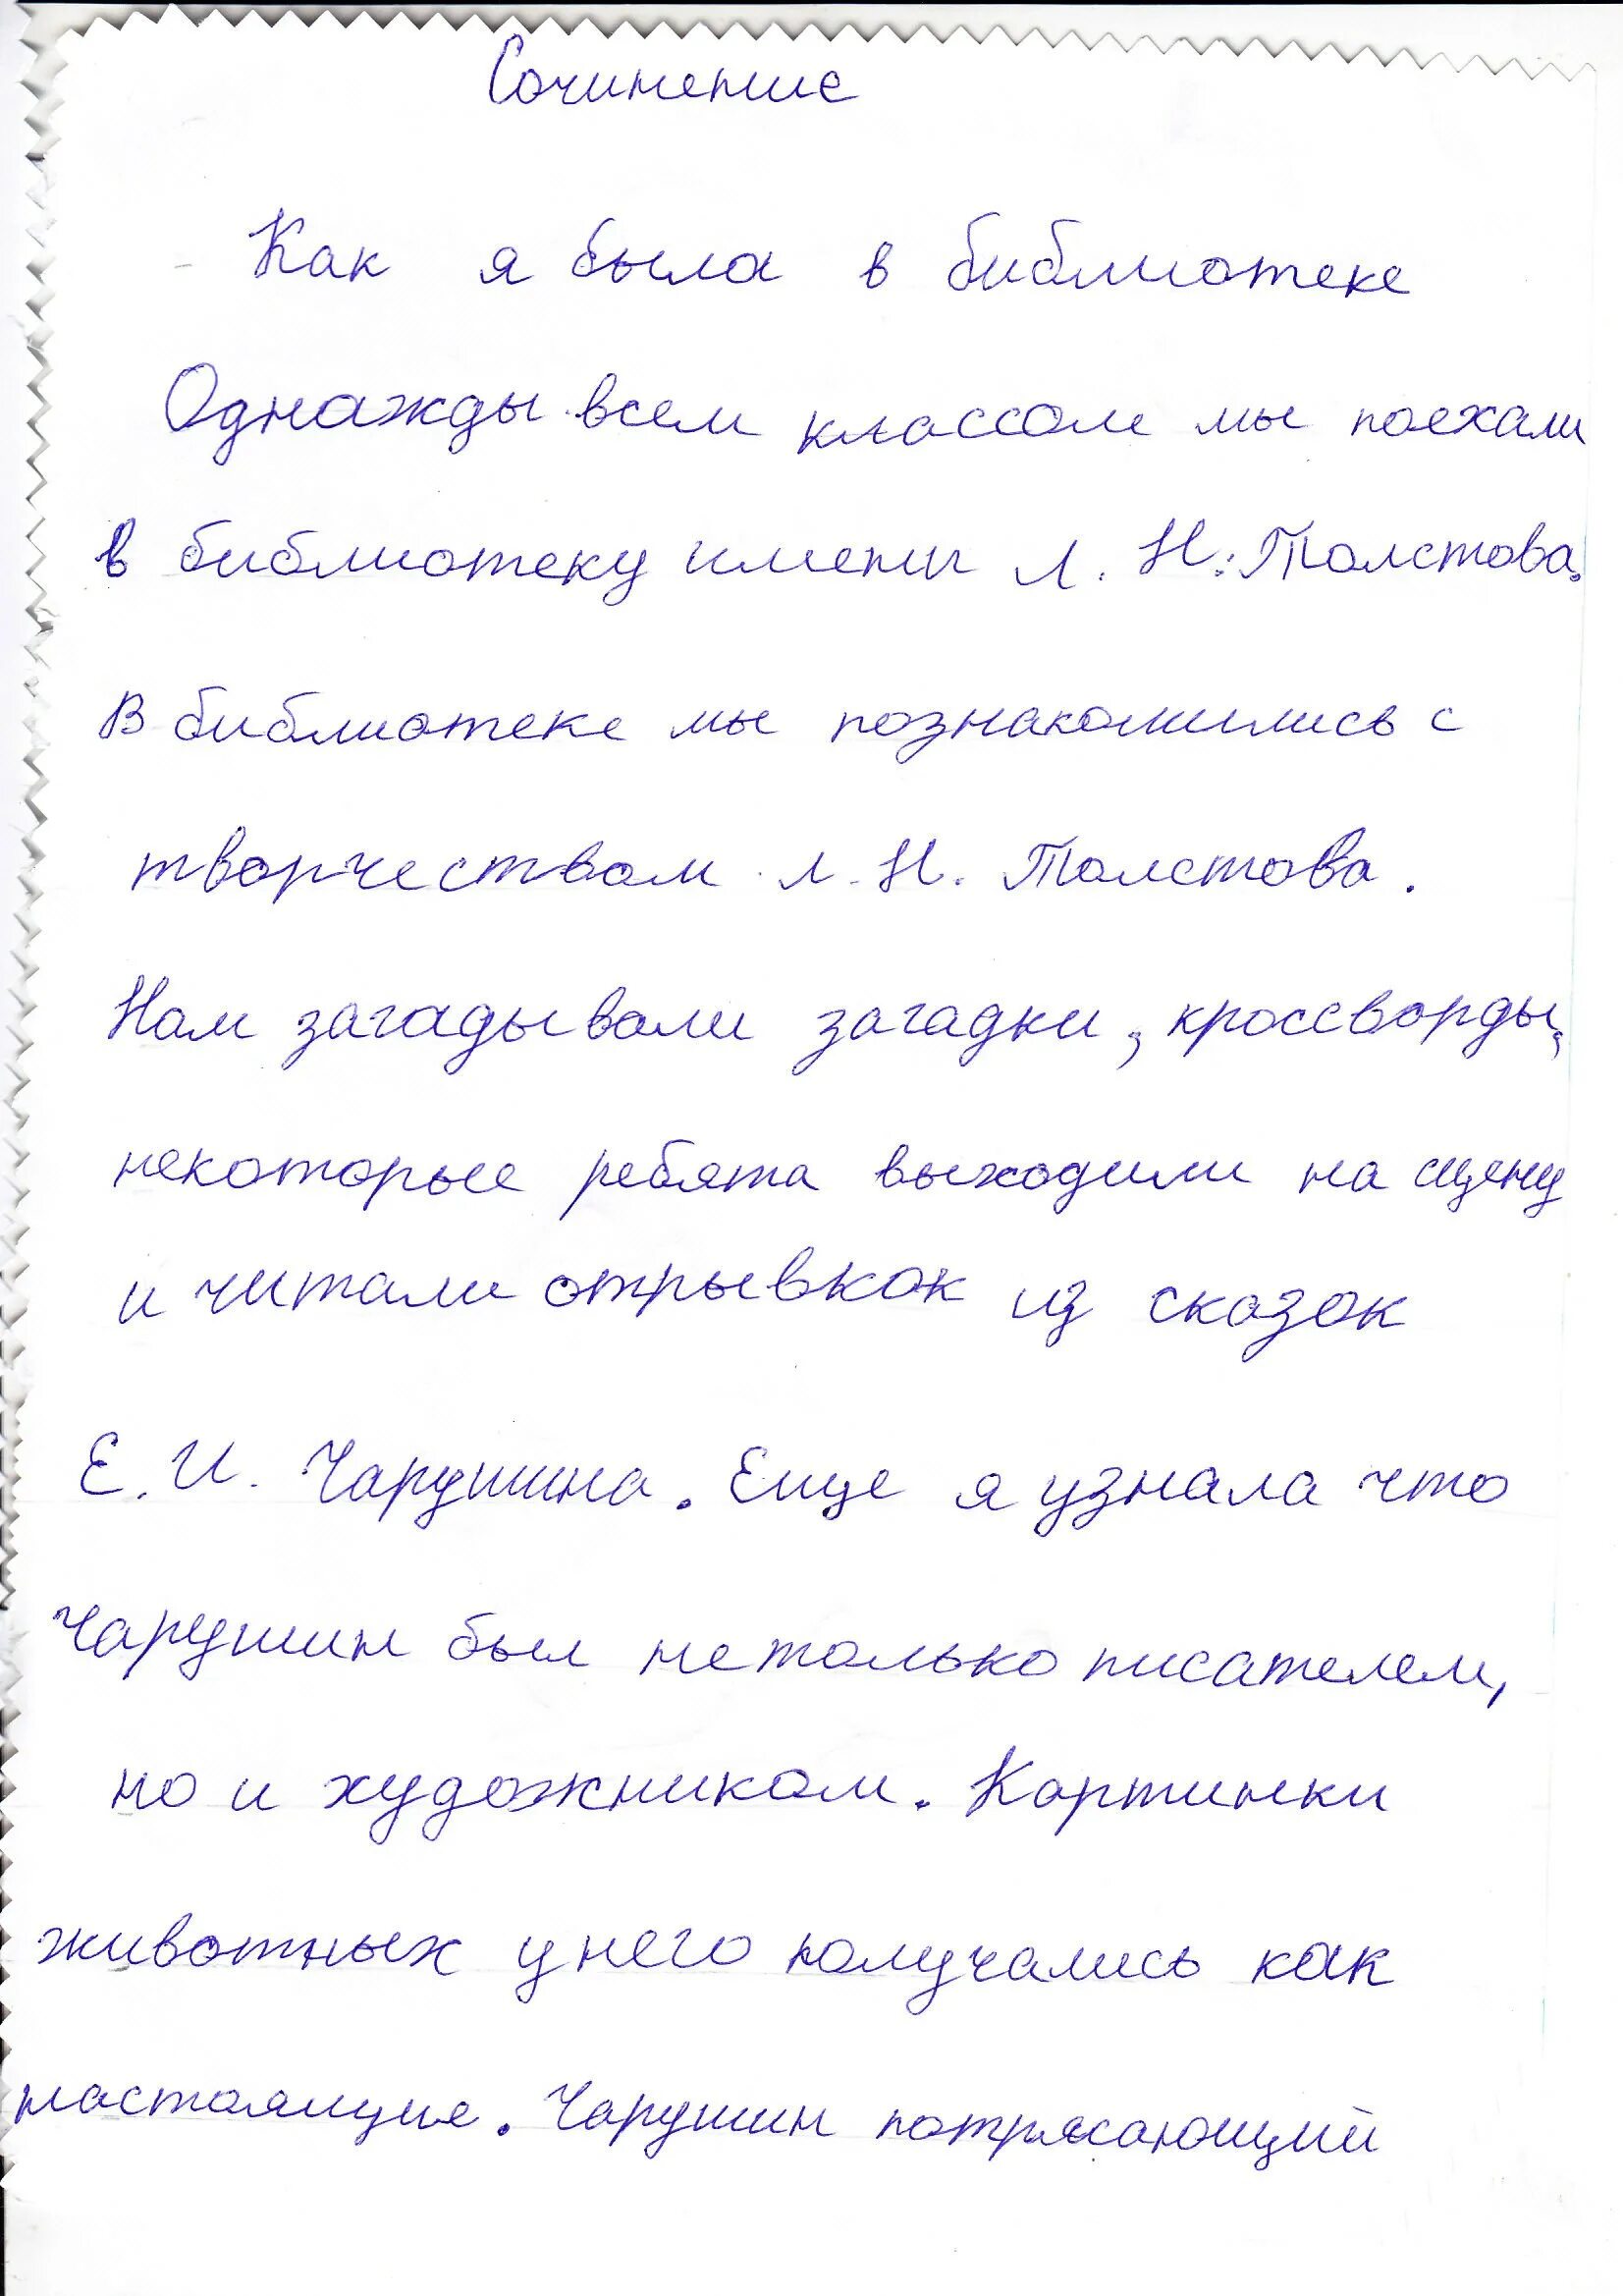 Сочинение
Как я была в библиотеке
Однажды всем классом мы поехали
в библиотеку имени Л. Н. Толстова.
В библиотеке мы познакомились с
творчеством Л. Н. Толстова.
Нам загадывали загадки, кроссворды,
некоторые ребята выходили на сцену
и читали отрывкок из сказок
Е. И. Чарушина. Еще я узнала что
Чарушин был нетолько писателем,
но и художником. Картинки
животных у него получались как
настоящие. Чарушин потрясающий